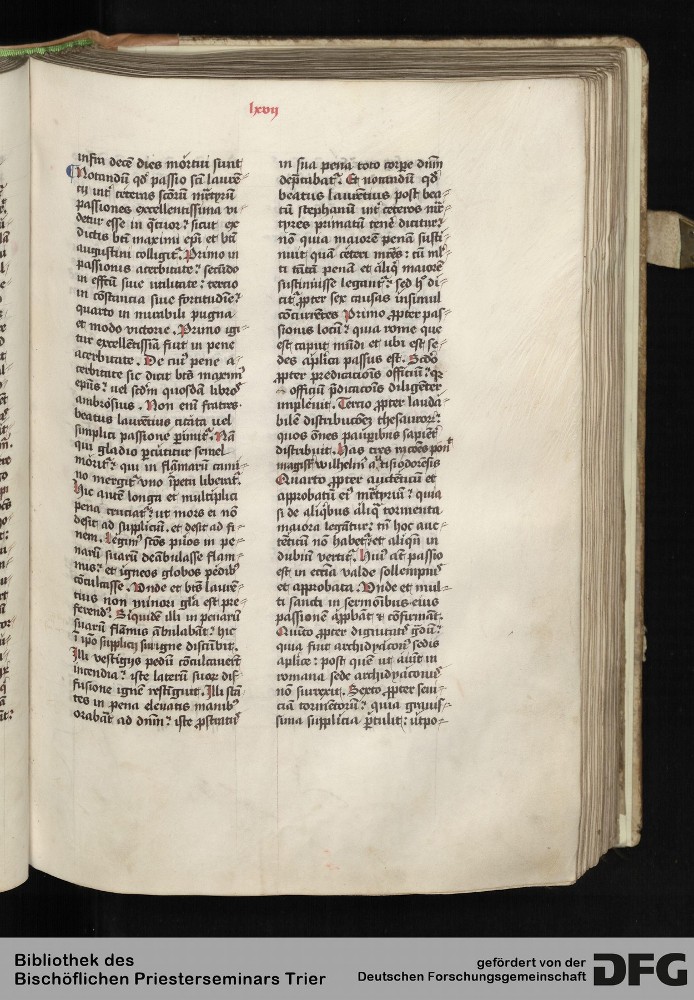 lxvij
infra decē dies mortui sunt
Notandū qd passio scī laurē-
tij int ceteras scōrū mrtyrū
passiones excellentissima vi
detur esse in qtuor sicut ex
dictis bti maximi epī et bti
augustini colligit. Primo in
passionis acerbitate secūdo
in effctu siue vtilitate tercio
in cōstancia siue fortitudine
quarto in mirabili pugna
et modo victorie. Primo igi-
tur excellētissīa fuit in pene
acerbitate. De cui pene a-
cerbitate sic dicit bts maxim
epūs vel scdm quosdā libros
ambrosius. Non enī fratres
beatus laurētius citata vel
simplici passione pimit. Nā
qui gladio pcutitur semel
morit qui in flāmarū cami-
no mergit vno īpetu liberat
Hic autē longa et multiplici
pena cruciat ut mors ei nō
desit ad suppliciū. et desit ad fi-
nem. Legim scōs pūos in pe-
narū suarū deābulasse flam-
mis et igneos globos pedib
cōculcasse. Vnde et bts laurē-
tius non minori gla est pre-
ferend. Siquidē illi in penarū
suarū flāmis ābulabāt hic
ī ipo supplicij sui igne discūbit.
Illi vestigijs pedū cōculcauerūt
incendia iste laterū suor dif-
fusione ignē restīguit. Illi stā
tes in pena eleuatis manib
orabāt ad dnm iste pstratus
in sua pena toto corpe dnm
depcabat. Et notandū qd
beatus laurētius post bea-
tū stephanū int ceteros mr-
tyres primatū tenē dicitur
nō quia maiorē penā susti-
nuit quā ceteri mrēs cū ml-
ti tātā penā et aliq maiorē
sustinuisse legant sed h di-
cit ppter sex causas insimul
cōcurrētes Primo ppter pas-
sionis locū quia rome que
est caput mūdi et vbi est se-
des aplica passus est. Scdo
ppter predicacionis officiū q
officiū pdicacōis diligēter
impleuit. Tercio ppter lauda-
bilē distribucōez thesauror
quos ōnes paupibus sapient
distribuit. Has tres racōes pon
magist wilhelm atisiodorēsis
Quarto ppter autēticū et
approbatū ei mrtyriū quia
si de aliqibus aliq tormenta
maiora legātur tn hoc aut-
tēticū nō habet et aliqn in
dubiū vertit. Hui aūt passio
est in eccia valde sollempnis
et approbata. Vnde et mul-
ti sancti in sermōibus eius
passionē appbāt et cōfirmāt.
Quīto ppter dignitatis gdū
quia fuit archidyacon sedis
aplice post quē ut aiūt in
romana sede archidyaconus
nō surrexit. Sexto ppter seui-
ciā tormētorū quia grauis-
sima supplicia ptulit utpo-
Bibliothek des
Bischöflichen Priesterseminars Trier
gefördert von der
Deutschen Forschungsgemeinschaft
DFG